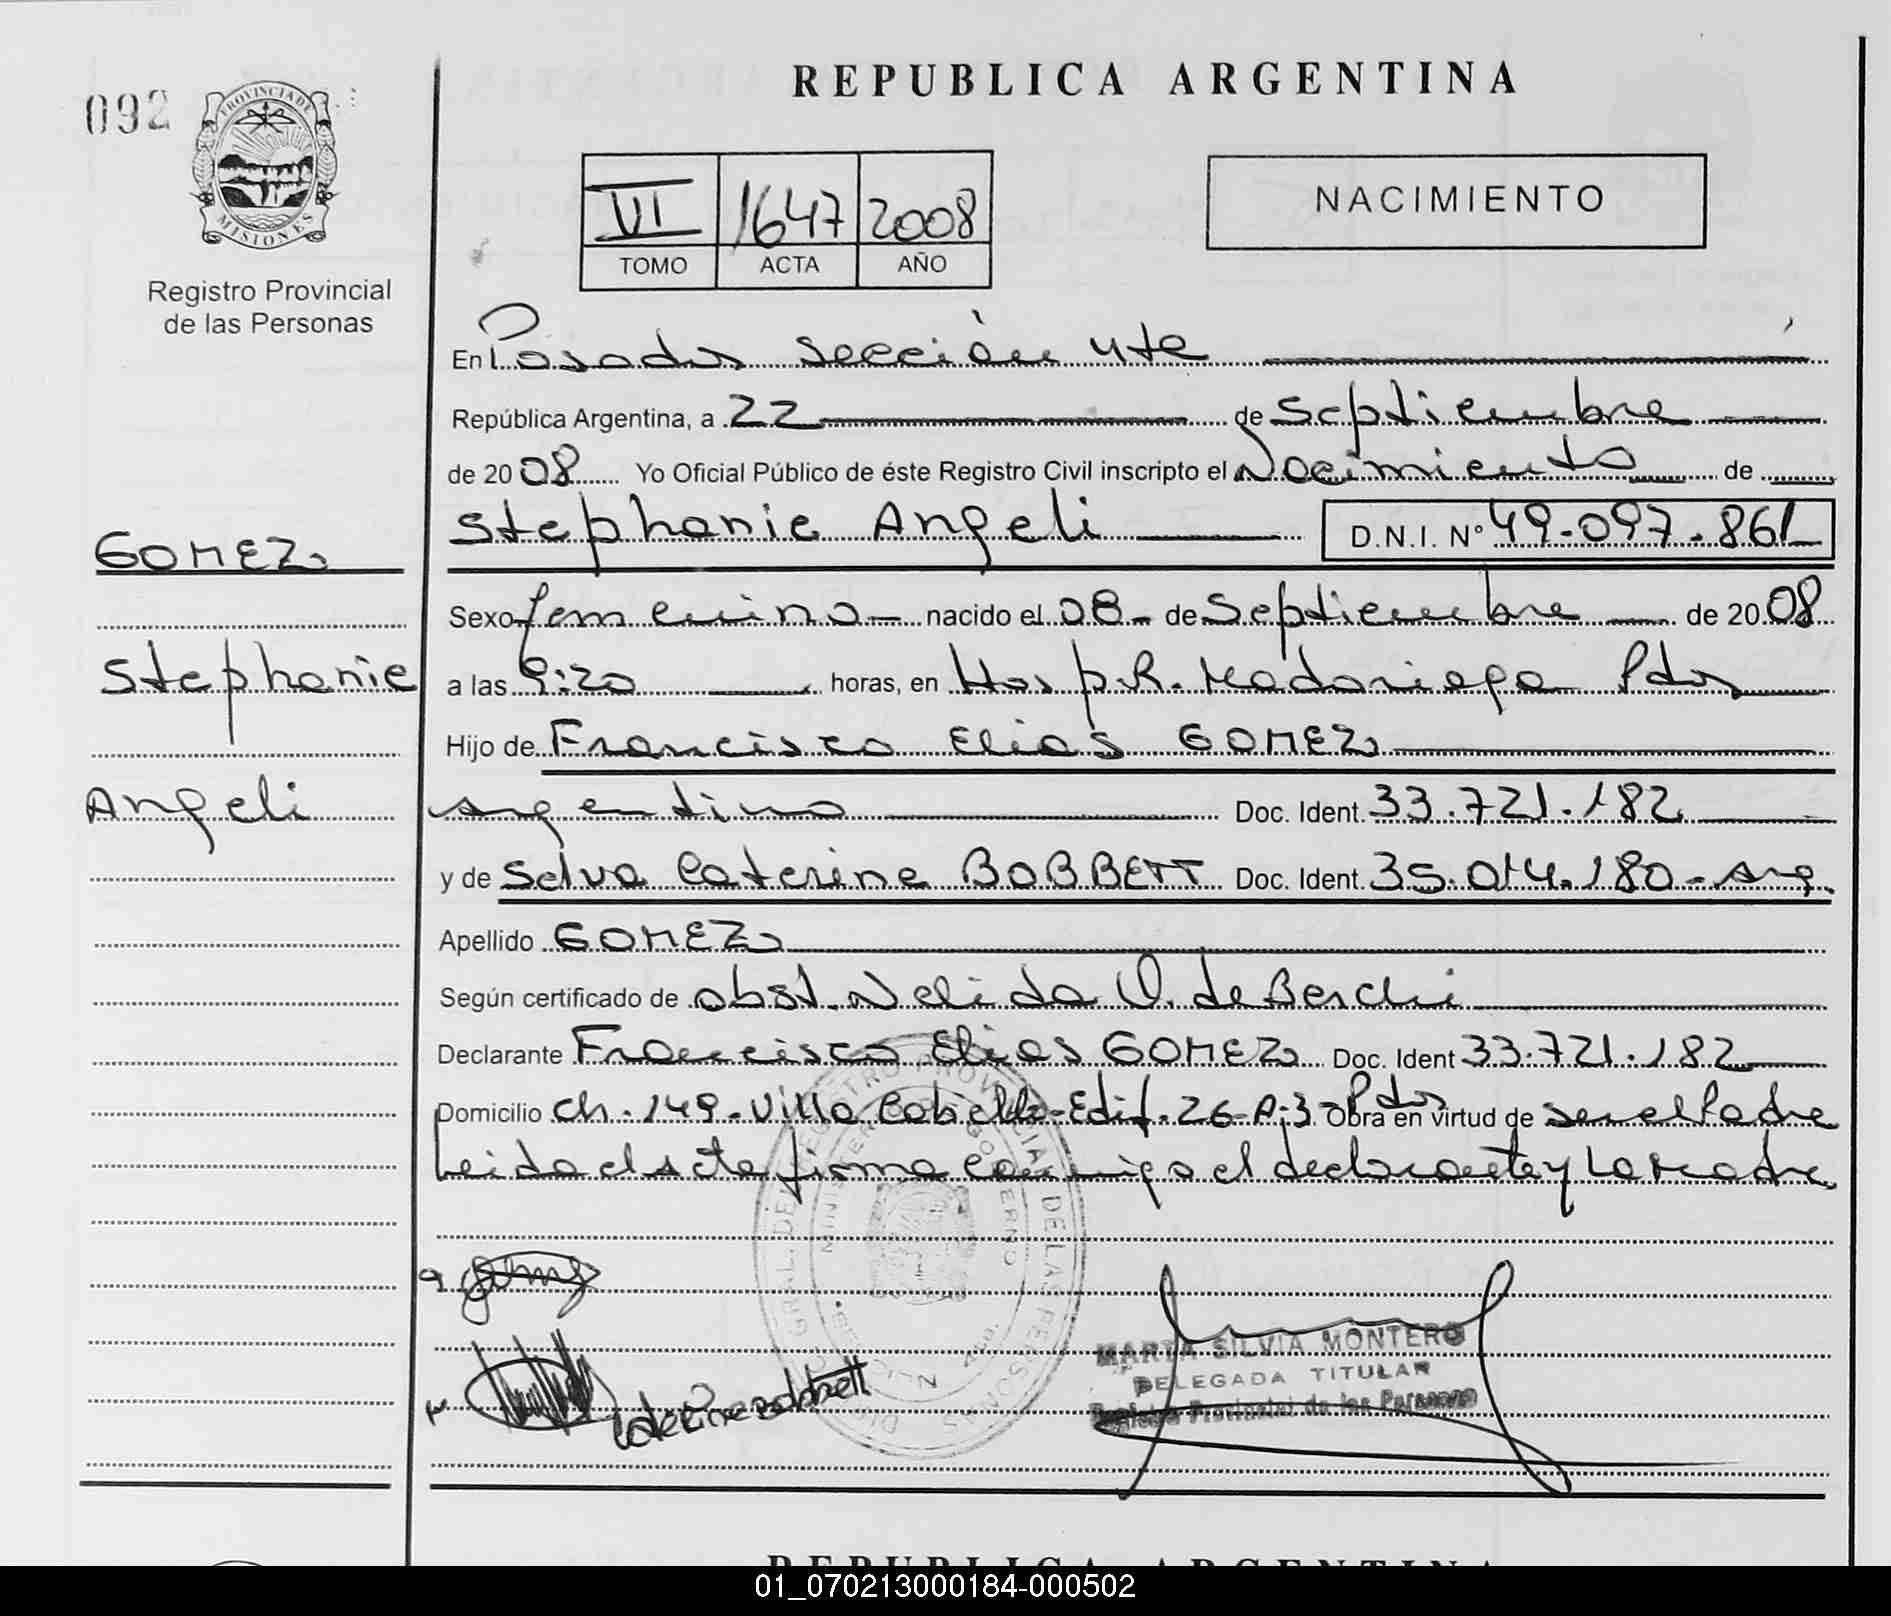 REPUBLICA ARGENTINA
092
PROVINCIA DE
MISIONES
Registro Provincial
de las Personas
VI 1647 2008
TOMO ACTA AÑO
NACIMIENTO
En Posadas sección 4ta
República Argentina, a 22 de Septiembre
de 2008 Yo Oficial Público de éste Registro Civil inscripto el Nacimiento de
Stephanie Angeli D.N.I. Nº 49.097.861
GOMEZ
Stephanie
Angeli
Sexo femenino nacido el 08 de Septiembre de 2008
a las 9:20 horas, en Hosp. R. Madariaga Pdas
Hijo de Francisco Elias GOMEZ
argentino Doc. Ident. 33.721.182
y de Selva Caterine BOBBETT Doc. Ident. 35.014.180 - Arg.
Apellido GOMEZ
Según certificado de obst. Nelida de
Declarante Francisco Elias GOMEZ Doc. Ident 33.721.182
Domicilio Ch. 149 - Villa Cabello - Edif. 26 - A: 3 - Pdas Obra en virtud de ser el Padre
Leida el Acta firma conmigo el declarante y La Madre
MARTA SILVIA MONTERO
DELEGADA TITULAR
Registro Provincial de las Personas
REPUBLICA ARGENTINA
01_070213000184-000502